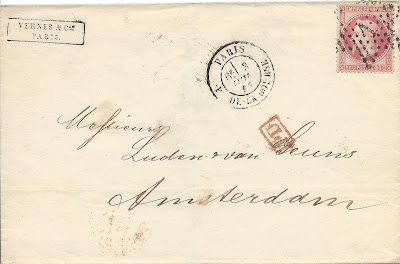 VERNES & Cie
PARIS.
PARIS
PL. DE LA BOURSE
PD
Messieurs
Luden & van Geuns
Amsterdam